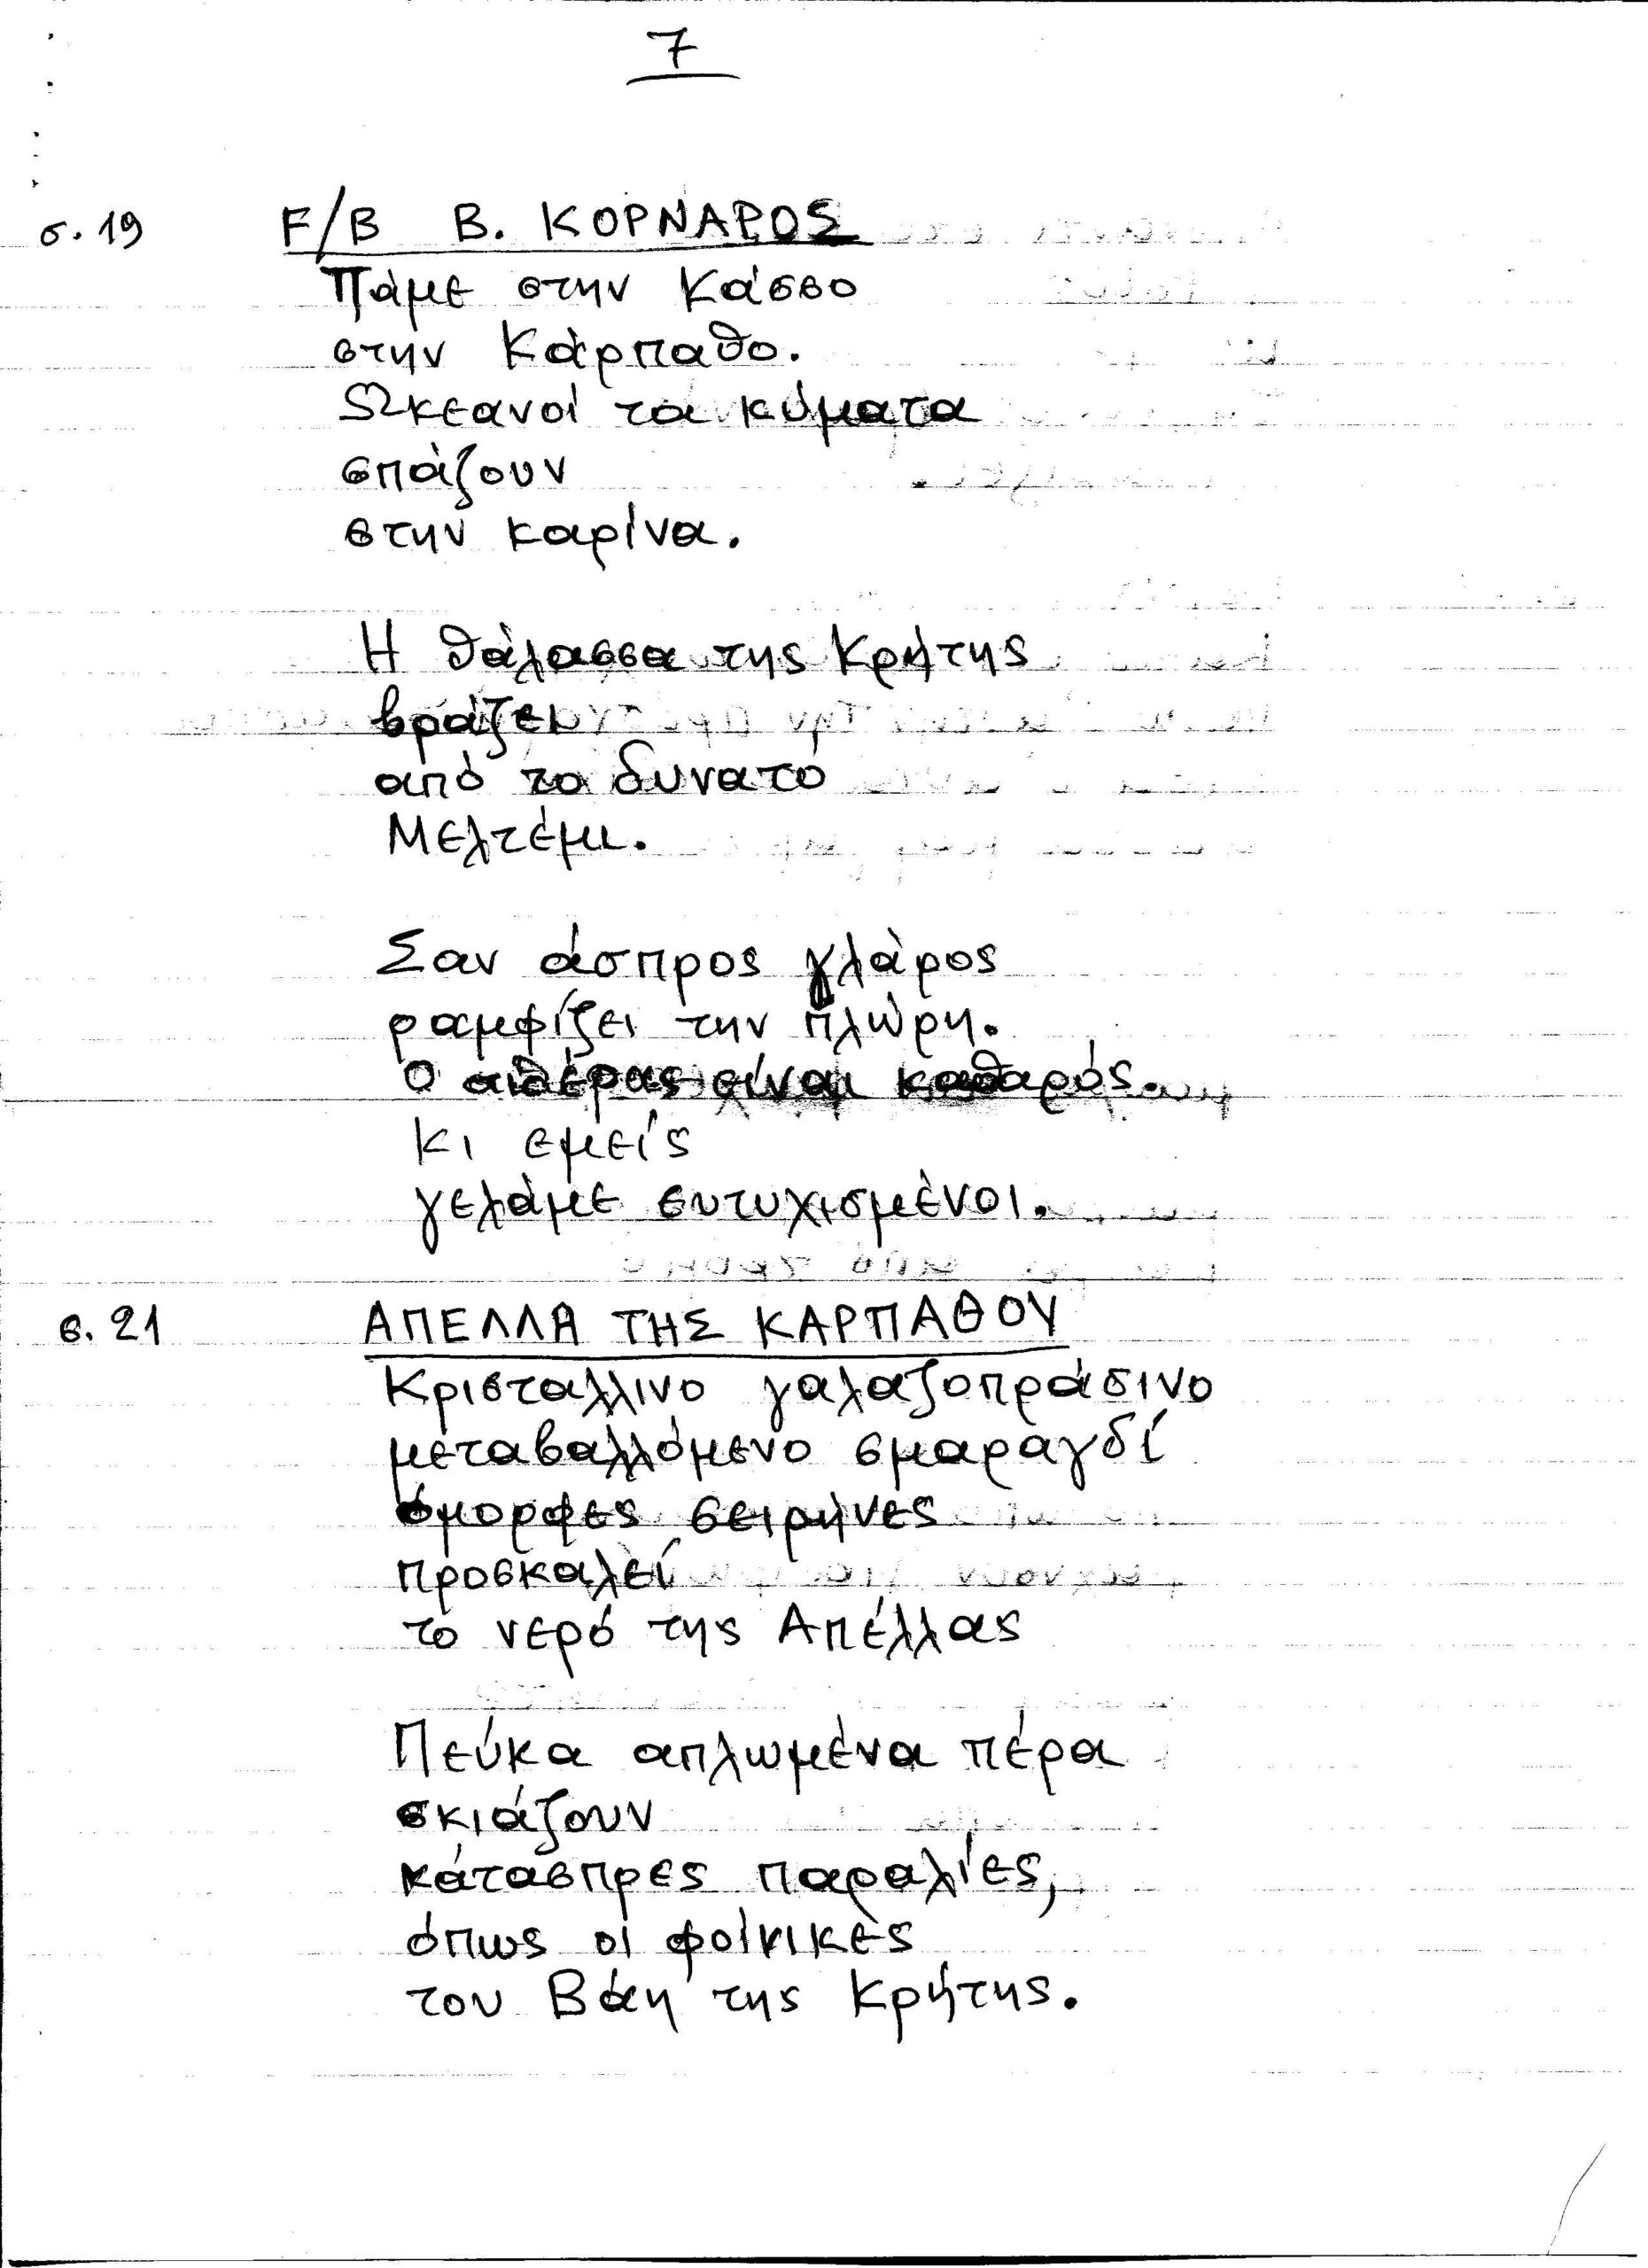 7
σ. 19 F/B Β. ΚΟΡΝΑΡΟΣ
Πάμε στην Κάσσο
στην Κάρπαθο.
Ωκεανοί τα κύματα
σπάζουν
στην καρίνα.
Η θάλασσα της Κρήτης
βράζει
από το δυνατό
Μελτέμι.
Σαν άσπρος γλάρος
ραμφίζει την πλώρη.
Ο αιθέρας είναι καθαρός.
κι εμείς
γελάμε ευτυχισμένοι.
σ. 21 ΑΠΕΛΛΑ ΤΗΣ ΚΑΡΠΑΘΟΥ
Κρισταλλινο γαλαζοπράσινο
μεταβαλλόμενο σμαραγδί
όμορφες σειρήνες
προσκαλεί
το νερό της Απέλλας
Πεύκα απλωμένα πέρα
σκιάζουν
κάτασπρες παραλίες,
όπως οι φοίνικες
του Βάη της Κρήτης.